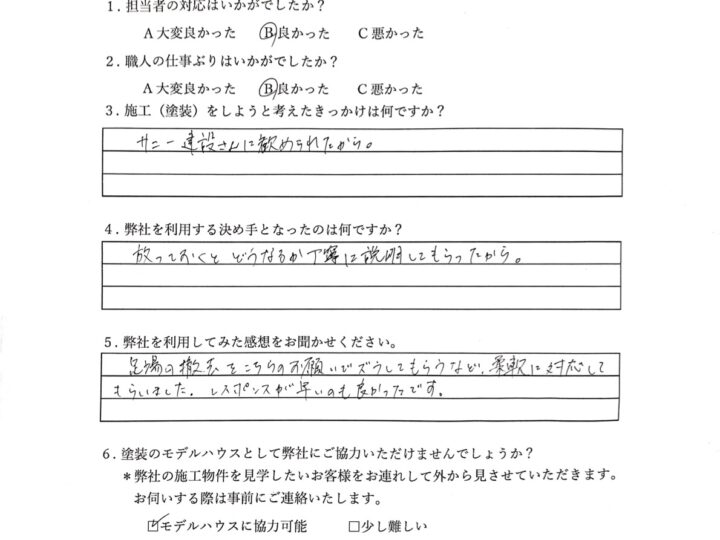 1. 担当者の対応はいかがでしたか?
A大変良かった B良かった C悪かった
2. 職人の仕事ぶりはいかがでしたか?
A大変良かった B良かった C悪かった
3. 施工（塗装）をしようと考えたきっかけは何ですか?
サニー建設さんに歓められたから。
4. 弊社を利用する決め手となったのは何ですか?
放っておくとどうなるか丁寧に説明してもらったから。
5. 弊社を利用してみた感想をお聞かせください。
足場の撤去をこちらのお願いでズラしてもらうなど、柔軟に対応して
もらいました。レスポンスが早いのも良かったです。
6. 塗装のモデルハウスとして弊社にご協力いただけませんでしょうか?
＊弊社の施工物件を見学したいお客様をお連れして外から見させていただきます。
お伺いする際は事前にご連絡いたします。
☑モデルハウスに協力可能 □少し難しい